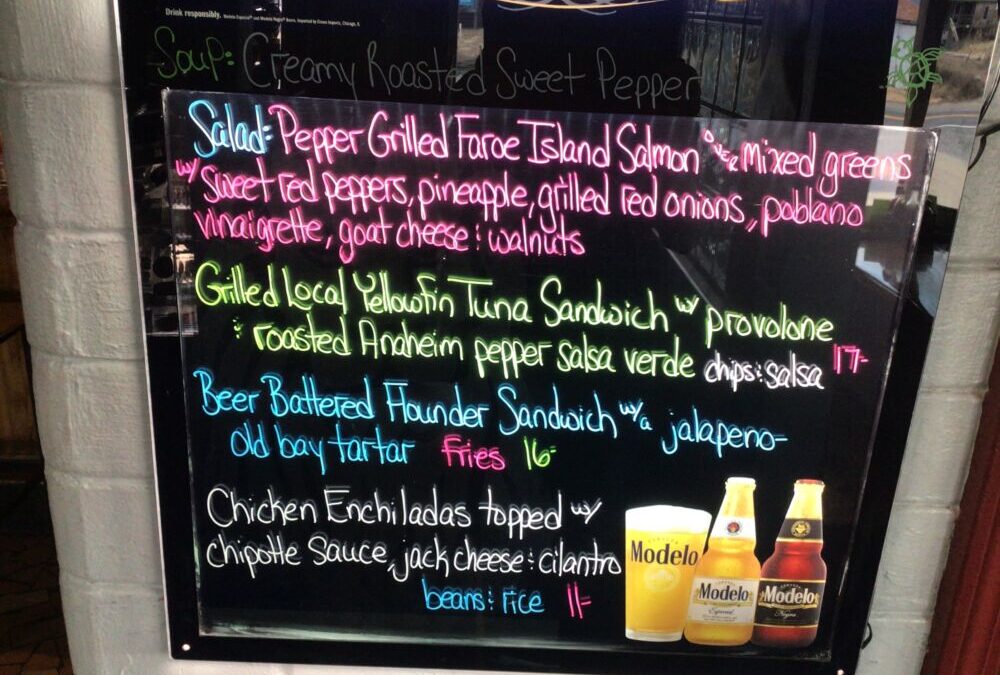 Drink responsibly. Modelo Especial® and Modelo Negra® Beers. Imported by Crown Imports, Chicago, IL
Soup: Creamy Roasted Sweet Pepper
Salad: Pepper Grilled Faroe Island Salmon over mixed greens
w/ sweet red peppers, pineapple, grilled red onions, poblano
vinaigrette, goat cheese & walnuts
Grilled Local Yellowfin Tuna Sandwich w/ provolone
& roasted Anaheim pepper salsa verde chips & salsa 17-
Beer Battered Flounder Sandwich w/a jalapeno-
old bay tartar Fries 16-
Chicken Enchiladas topped w/
chipotle sauce, jack cheese & cilantro
beans & rice 11-
Modelo
Modelo
Especial
Modelo
Negra